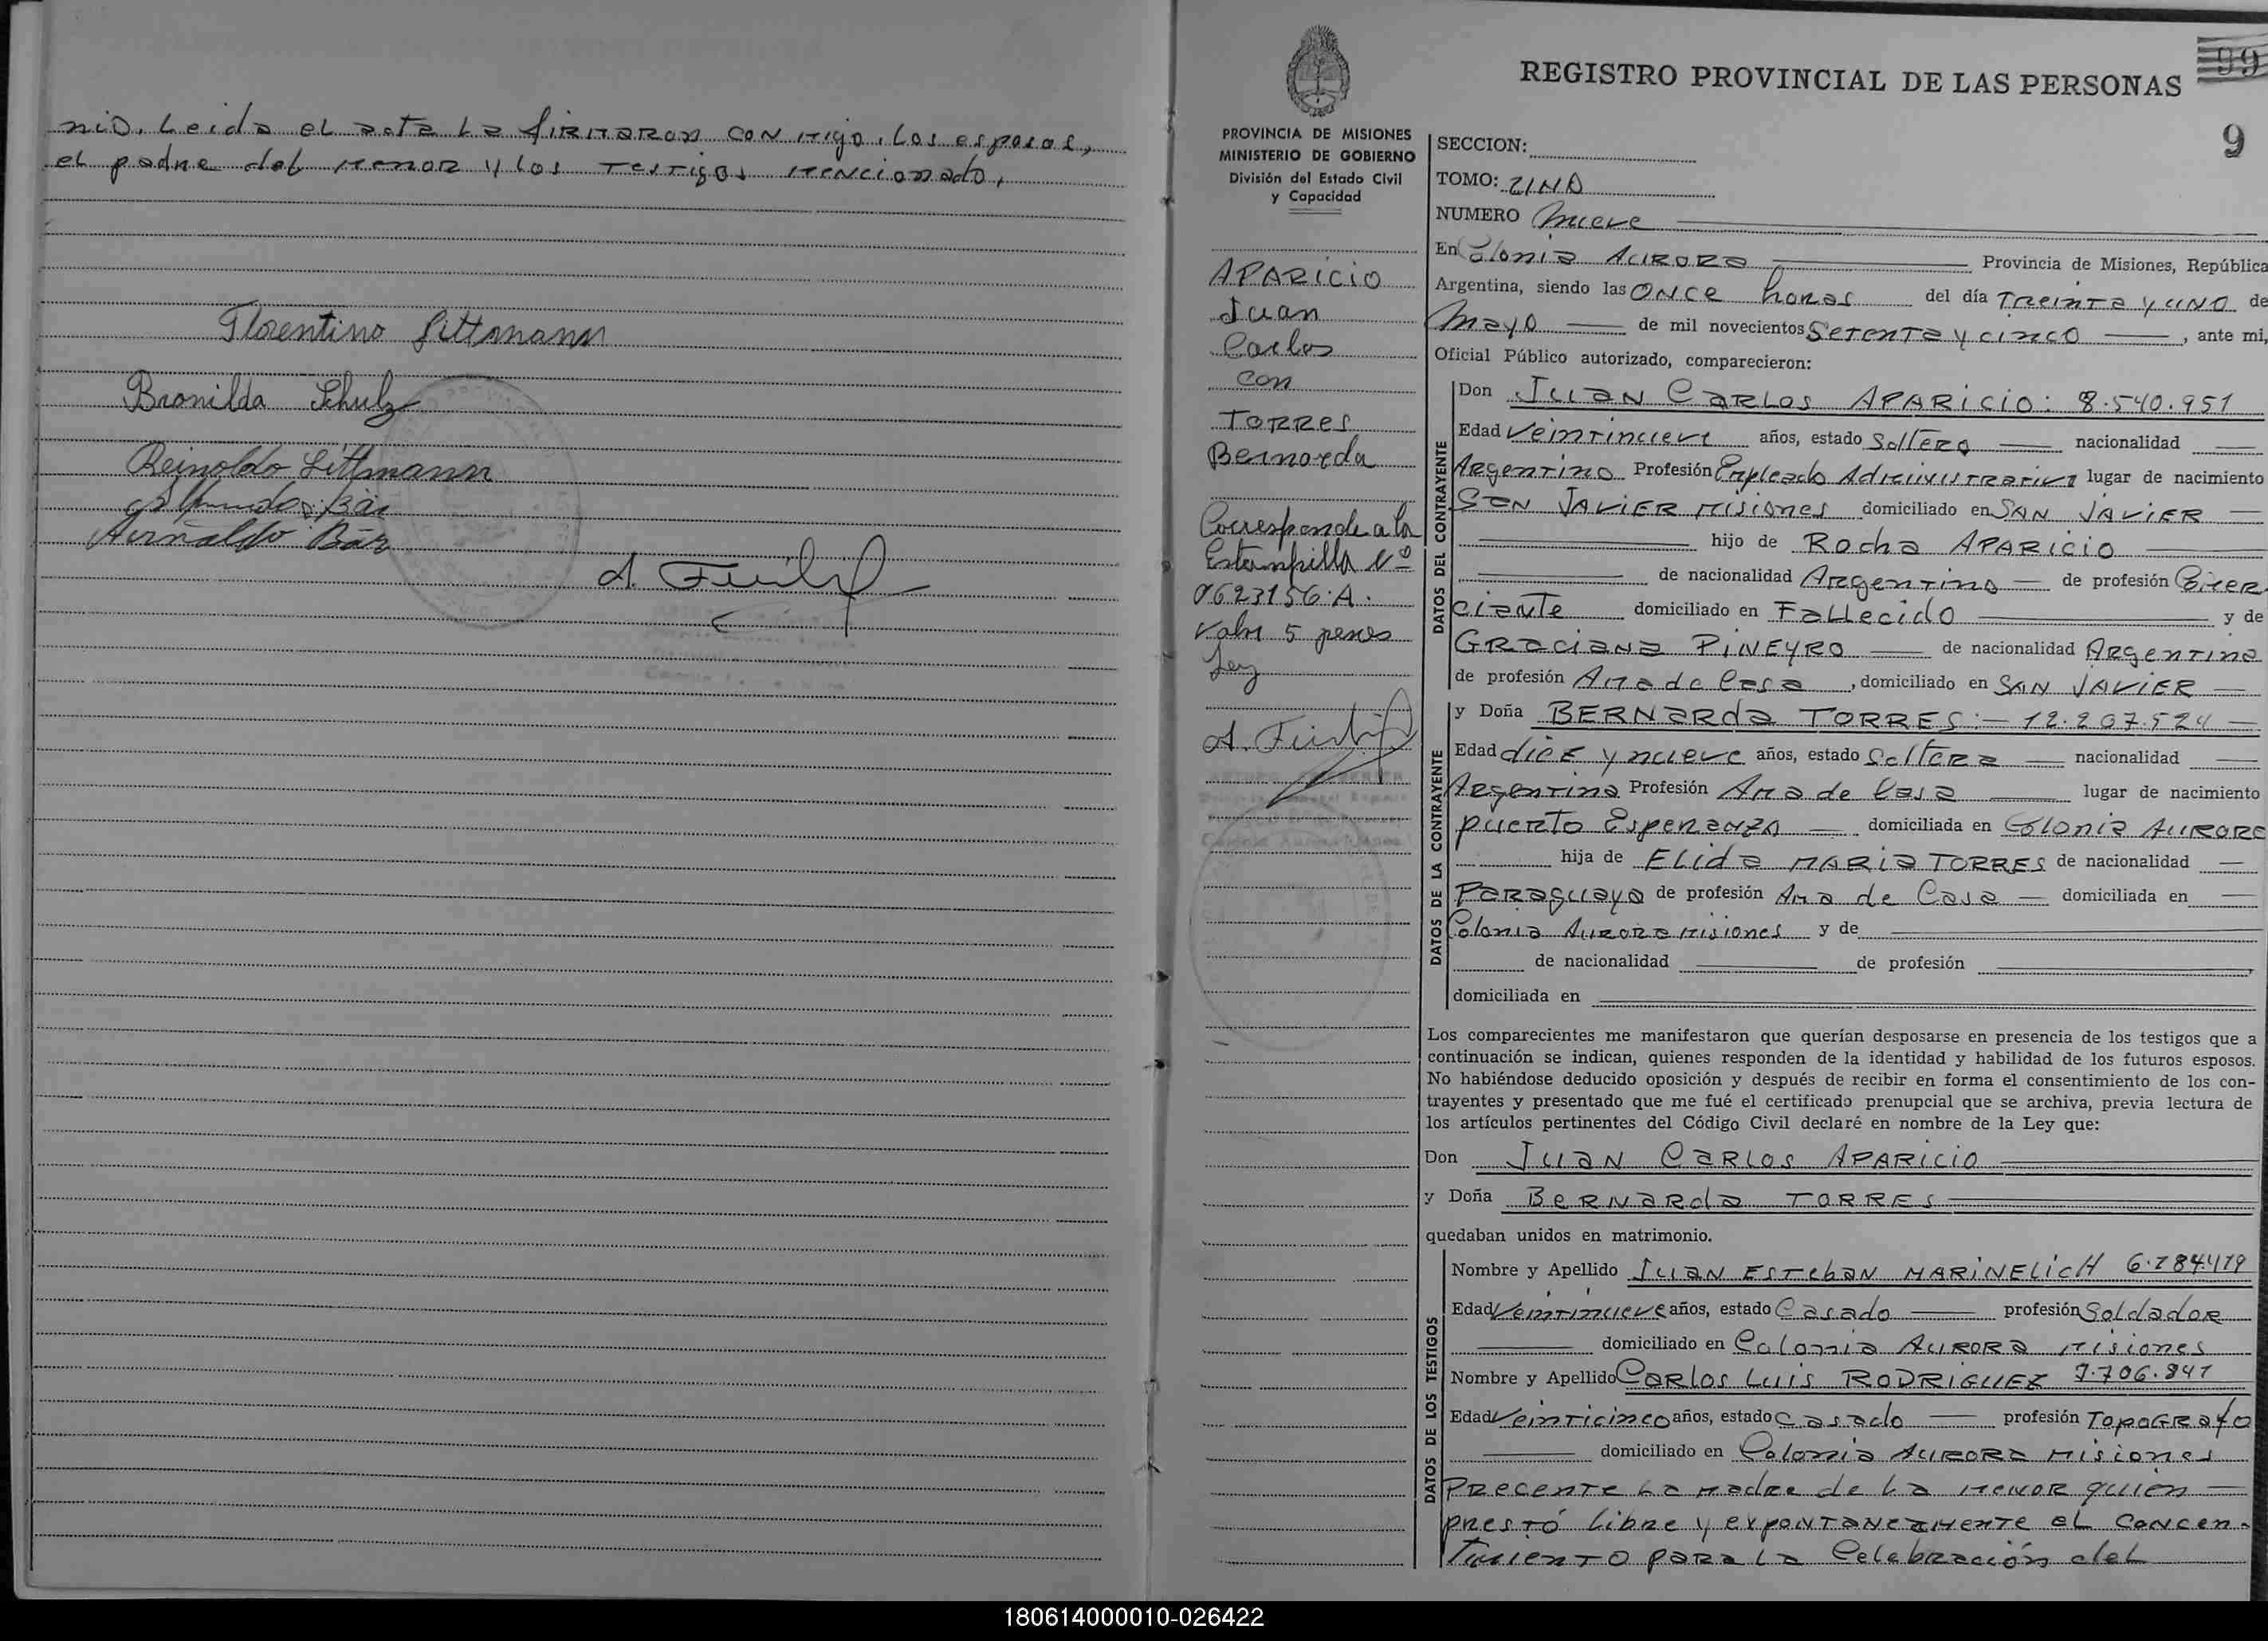 nio. Leida el acta La firmaron conmigo, Los esposos,
el padre del menor y los testigos mencionado,
Florentino Littmann
Bronilda Schulz
Reinoldo Littmann
Arnaldo Bär
REGISTRO PROVINCIAL DE LAS PERSONAS
99
9
PROVINCIA DE MISIONES
MINISTERIO DE GOBIERNO
División del Estado Civil
y Capacidad
APARICIO
Juan
Carlos
con
TORRES
Bernarda
Corresponde a la
Estampilla Nº
0623156.A.
Valor 5 pesos
Ley
SECCION:
TOMO: UNO
NUMERO Nueve
En Colonia Aurora Provincia de Misiones, República
Argentina, siendo las once horas del día Treinta y uno de
Mayo de mil novecientos Setenta y cinco , ante mi,
Oficial Público autorizado, comparecieron:
DATOS DEL CONTRAYENTE
Don Juan Carlos APARICIO: 8.540.951
Edad Veintinueve años, estado Soltero nacionalidad
Argentino Profesión Empleado Administrativo lugar de nacimiento
San Javier Misiones domiciliado en San Javier
hijo de Rocha APARICIO
de nacionalidad Argentino de profesión Comer
ciante domiciliado en Fallecido y de
Graciana PINEYRO de nacionalidad Argentina
de profesión Ama de Casa , domiciliado en San Javier
DATOS DE LA CONTRAYENTE
y Doña BERNARda TORRES:- 12.207.524
Edad diez y nueve años, estado Soltera nacionalidad
Argentina Profesión Ama de Casa lugar de nacimiento
puerto Esperanza domiciliada en Colonia Aurora
hija de Elida MARIA TORRES de nacionalidad
Paraguaya de profesión Ama de Casa domiciliada en
Colonia Aurora Misiones y de
de nacionalidad de profesión
domiciliada en
Los comparecientes me manifestaron que querían desposarse en presencia de los testigos que a
continuación se indican, quienes responden de la identidad y habilidad de los futuros esposos.
No habiéndose deducido oposición y después de recibir en forma el consentimiento de los con-
trayentes y presentado que me fué el certificado prenupcial que se archiva, previa lectura de
los artículos pertinentes del Código Civil declaré en nombre de la Ley que:
Don Juan Carlos APARICIO
y Doña Bernarda TORRES
quedaban unidos en matrimonio.
DATOS DE LOS TESTIGOS
Nombre y Apellido Juan Esteban MARINELICH
Edad Veintinueve años, estado Casado profesión Soldador
domiciliado en Colonia Aurora Misiones
Nombre y Apellido Carlos Luis RODRIGUEZ 7.706.841
Edad Veinticinco años, estado Casado profesión Topografo
domiciliado en Colonia Aurora Misiones
Precente La madre de La menor quien
prestó Libre y expontaneamente el concen-
timiento para la Celebración del
180614000010-026422